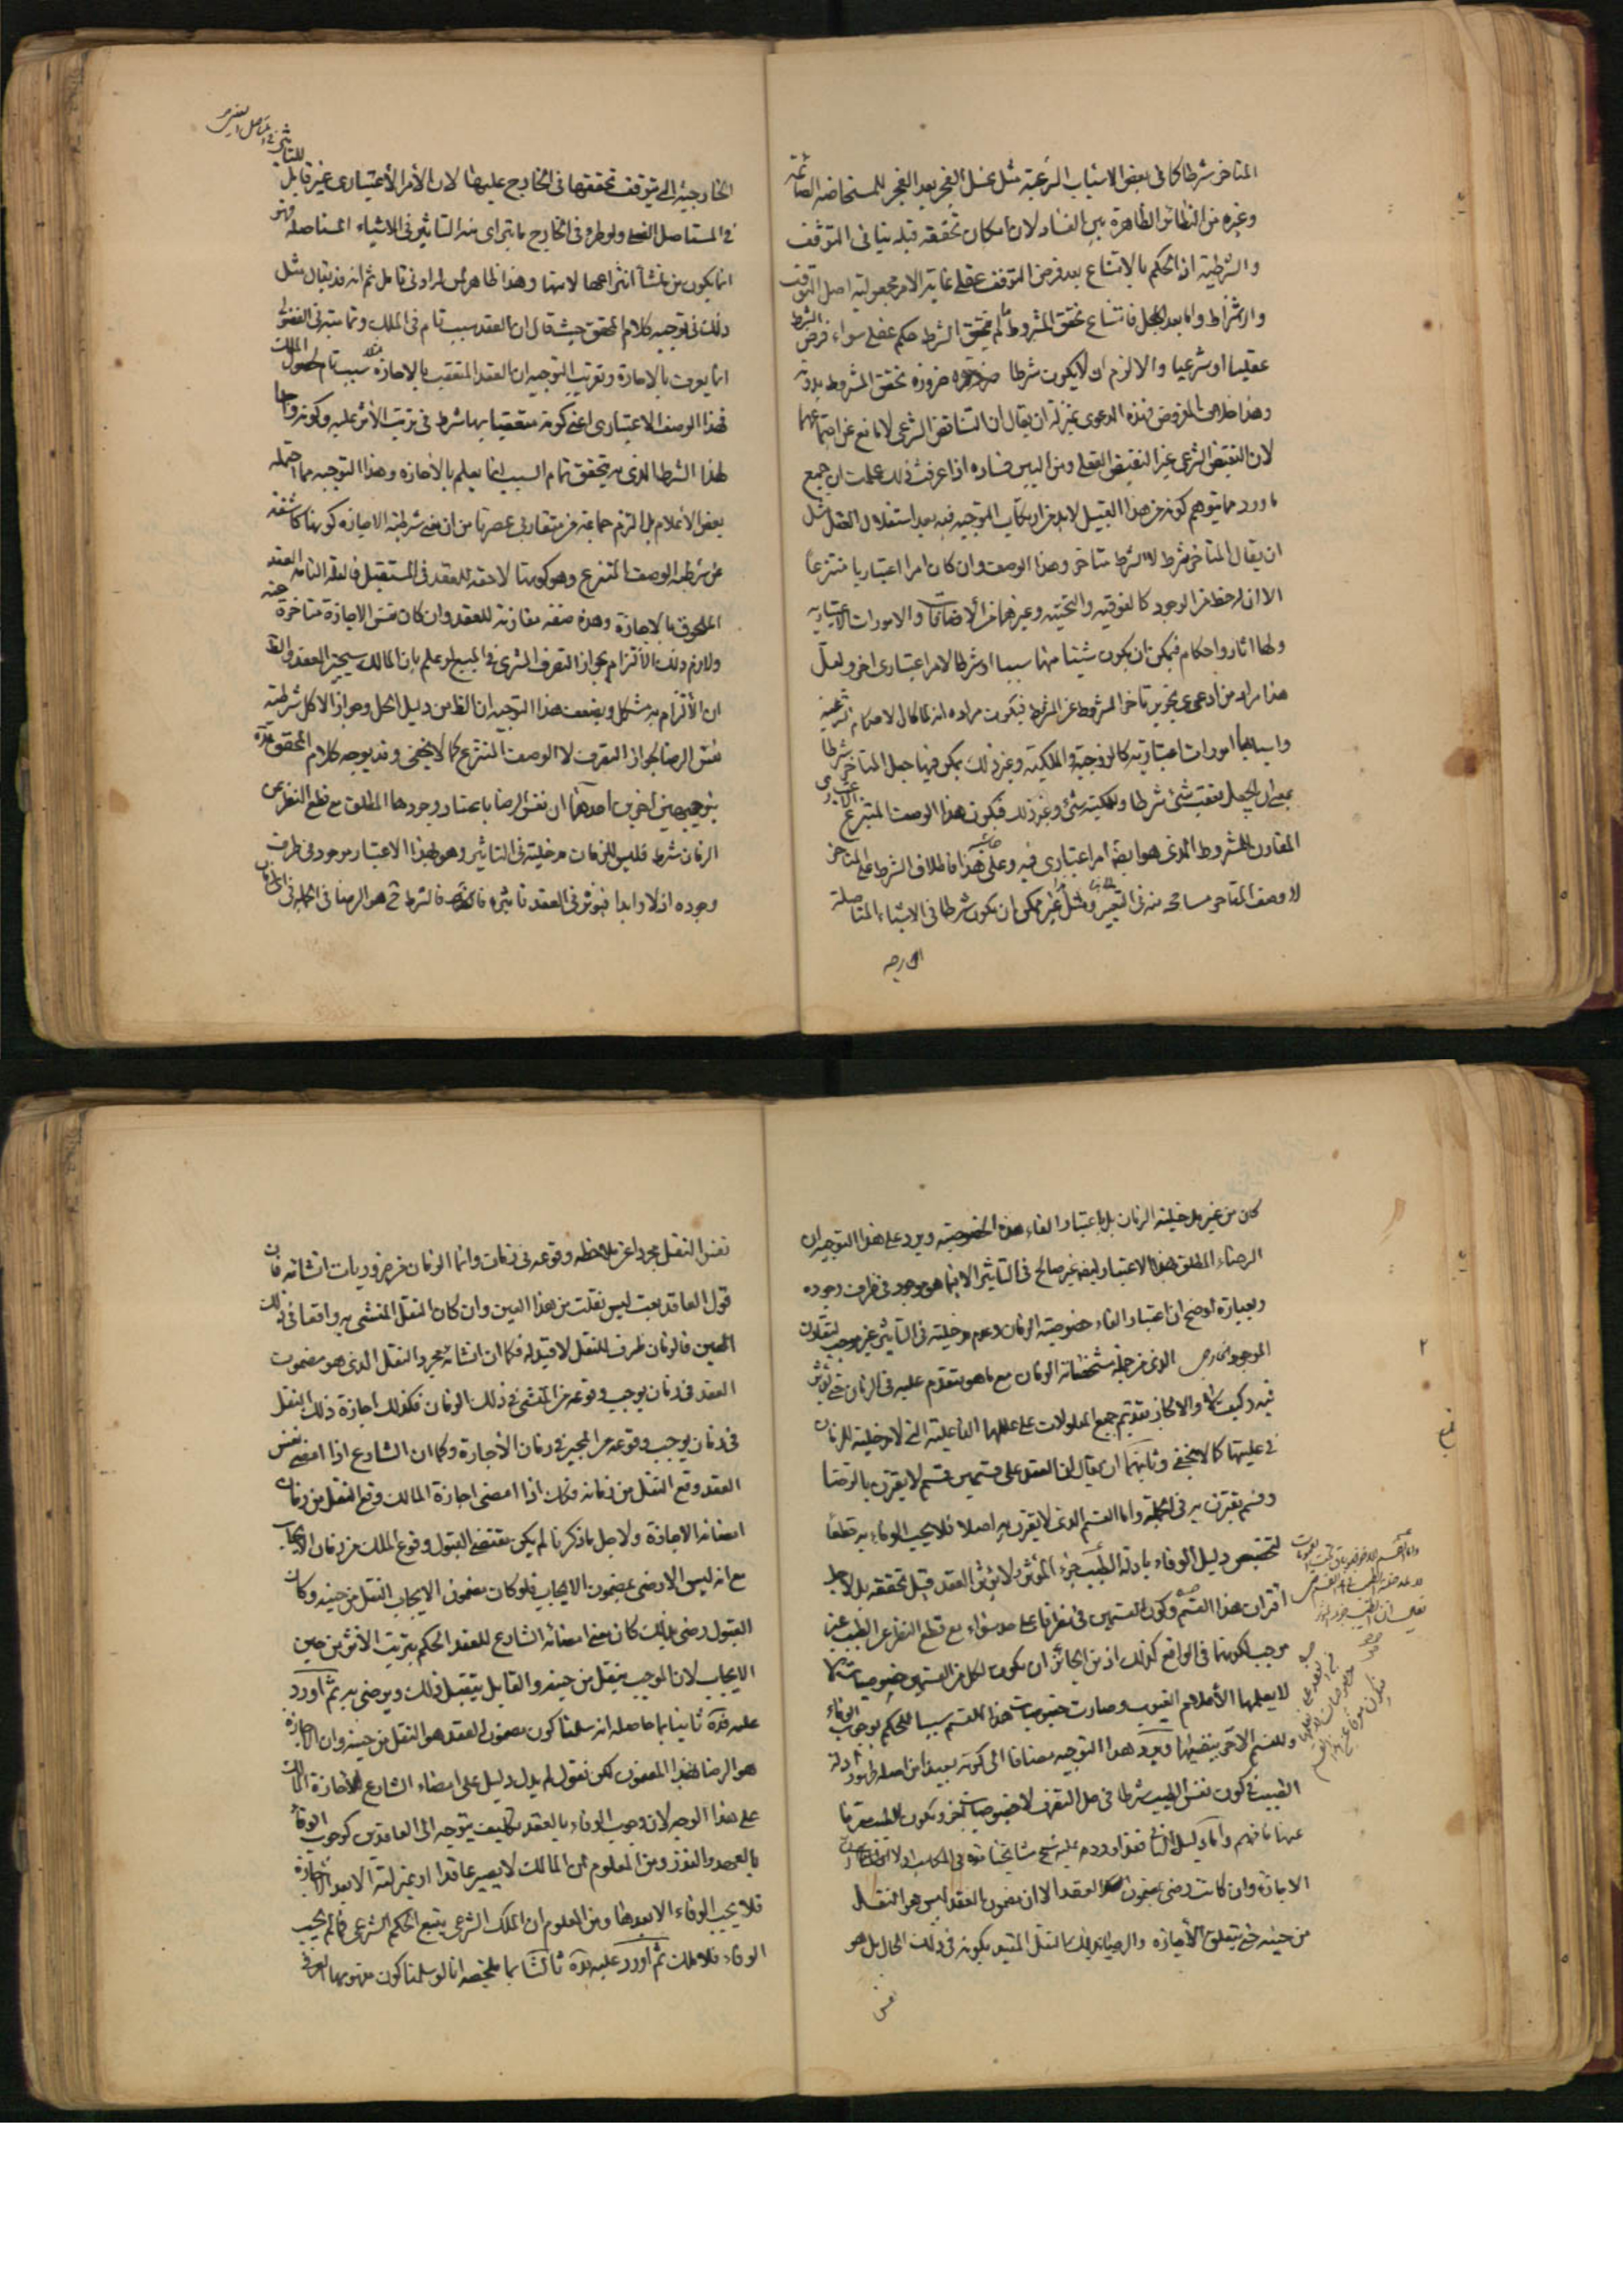 المتاخر شرطا كما فى بعض الاسباب الشرعية مثل غسل الفجر بعد الفجر للمستحاضة الصائمة
وغيره من النظائر الظاهرة بين الفساد لان امكان تحققه قبله ينافى التوقف
والشرطية اذ الحكم بالامتناع بعد فرض التوقف عقلى غاية الامر مجعولية اصل التوقف
والاشتراط واما بعد الجعل فامتناع تحقق المشروط لما لم يتحقق الشرط حكم عقلى سواء فرض الشرط
عقليا او شرعيا والا لزم ان لا يكون شرطا ضرورة تحقق المشروط بدونه
وهذا خلاف المفروض فهذه الدعوى بمنزلة ان يقال ان التناقض الشرعى لا مانع عن اجتماعهما
لان النقيض الشرعى غير النقيض العقلى ومن البين فساده اذا عرفت ذلك علمت ان جميع
ما ورد مما يتوهم كونه من هذا القبيل لا بد من ارتكاب التوجيه فيه بعد استقلال العقل مثل
ان يقال المتاخر شرط لا الشرط متاخر وهذا الوصف وان كان امرا اعتباريا منتزعا
الا ان له حظ من الوجود كالفوقية والتحتية وغيرهما من الاضافات والامورات الاعتبارية
ولها اثار واحكام فيمكن ان يكون شيئا منها سببا او شرطا لامر اعتبارى اخر ولعل
هذا مراد من ادعى تجويز تاخر المشروط عن الشرط فيكون مراده انه لما كان الاحكام الشرعية
واسبابها امورات اعتبارية كالزوجية والملكية وغير ذلك يمكن فيها جعل المتاخر شرطا
بمعنى ان يجعل تعقب شئ شرطا وملكية شئ وغير ذلك فيكون هذا الوصف المنتزع الاعتبارى
المقارن للمشروط الذى هو ايضا امر اعتبارى فيه وعلى هذا فاطلاق الشرط على المتاخر
لا وصف التاخر مسامحة منه فى التعبير ومثل هذا غير ممكن ان يكون شرطا فى الاشياء المتاصلة
الخارجية
الخارجية التى يتوقف تحققها فى الخارج عليها لان الأمر الأعتبارى غير قابل للتاثير
فى المتاصل ولو طرء فى الخارج ما يترائى منه التاثير فى الاشياء المتاصلة فهو
انما يكون من منشأ انتزاعها لا منها وهذا ظاهر لمن له ادنى تامل ثم انه قد يقال مثل
ذلك فى توجيه كلام المحقق حيث قال ان العقد سبب تام فى الملك وتماميته فى الفضولى
انما يعرف بالاجازة وتقريب التوجيه ان العقد المتعقب بالاجازة سبب تام لحصول الملك
فهذا الوصف الاعتبارى اعنى كونه متعقبا بها شرط فى ترتب الأثر عليه وكونه واجدا
لهذا الشرط الذى به يتحقق تمام السبب انما يعلم بالأجازة وهذا التوجيه مما احتمله
بعض الأعلام بل التزم جماعة من متقاربى عصرنا من ان معنى شرطية الاجازة كونها كاشفة
عن شرطية الوصف المنتزع وهو كونها لاحقة للعقد فى المستقبل فالعلة التامة العقد
الملحوق بالاجازة وهذه صفة مقارنة للعقد وان كان نفس الاجازة متاخرة عنه
ولازم ذلك الألتزام بجواز التصرف المشترى فى المبيع لو علم بان المالك سيجيز العقد والظ
ان الألتزام به مشكل ويضعف هذا التوجيه ان الظ من دليل الحل وجواز الاكل شرطية
نفس الرضا لجواز التصرف لا الوصف المنتزع كما لا يخفى وقد يوجه كلام المحقق قده
بتوجيهين اخرين احدهما ان نفس الرضا باعتبار وجودها المطلق مع قطع النظر عن
الزمان شرط فليس للزمان مدخلية فى التاثير وهو بهذا الاعتبار موجود فى ظرف
وجوده اذلا وابدا فيؤثر فى العقد تاثيره فالشرط ح هو الرضا فى الجملة فى اى زمان
كان من غير مدخلية الزمان بل باعتبار الغاء هذه الخصوصية ويرد على هذا التوجيه ان
الرضاء المطلق بهذا الاعتبار ايضا غير صالح فى التأثير الا بما هو موجود فى ظرف وجوده
وبعبارة اوضح ان اعتبار الغاء خصوصية الزمان وعدم مدخليته فى التأثير غير موجب لتقارن
الموجود الخارجى الذى من جملة مشخصاته الزمان مع ما هو متقدم عليه فى الزمان حتى يؤثر
فيه وكيف لا والا لجاز تقديم جميع المعلولات على عللها الفاعلية التى لا مدخلية للزمان
فى عليتها كما لا يخفى وثانيهما ان يقال ان العقد على قسمين قسم لا يقترن بالرضا
وقسم يقترن به فى الجملة واما القسم الذى لا يقترن به اصلا فلا يجب الوفاء به قطعا
لتخصيص دليل الوفاء بادلة الطيب جزء المؤثر ولا يؤثر العقد قبل تحققه بل لاجل
اقتران هذا القسم وكون القسمين فى نظرنا على حد سواء مع قطع النظر عن الطيب غير
موجب لكونهما فى الواقع كذلك اذ من الجائز ان يكون لكل من القسمين خصوصيات
لا يعلمها الا علام الغيوب وصارت خصوصيات هذا القسم سببا للحكم بوجوب الوفاء
وللقسم الاخر بنقيضها ويرد هذا التوجيه مضافا الى كونه بعيدا من اصله ظهور ادلة
الطيب فى كون نفس الطيب شرطا فى حل التصرف لا خصوصيات اخر ويكون الطيب معرفا
عنها فافهم واما دليل الثانى فقد اورد عليه شيخ مشايخنا قده فى المكاسب اولا
الاجازة وان كانت رضى بمضمون العقد الا ان مضمون العقد ليس هو النقل
من حينه حتى يتعلق الأجازة والرضا بذلك النقل المقيد بكونه فى ذلك الحال بل هو
نفس
نفس النقل مجردا عن ملاحظة وقوعه فى زمان وانما الزمان من ضروريات انشائه فان
قول العاقد بعت ليس نقلت من هذا الحين وان كان النقل المنشئ به واقعا فى ذلك
الحين فالزمان ظرف للنقل لا قيد له فكما ان انشاء مجرد النقل الذى هو مضمون
العقد فى زمان يوجب وقوعه من المنشئ فى ذلك الزمان فكذلك اجازة ذلك النقل
فى زمان يوجب وقوعه من المجيز فى زمان الأجازة وكما ان الشارع اذا امضى نفس
العقد وقع النقل من زمانه فكذلك اذا امضى اجازة المالك وقع النقل من زمان
امضائه الاجازة ولاجل ما ذكرنا لم يكن مقتضى القبول وقوع الملك من زمان الايجاب
مع انه ليس الا رضى بمضمون الايجاب فلو كان مضمون الايجاب النقل من حينه وكان
القبول رضى بذلك كان معنى امضائه الشارع للعقد الحكم بترتب الأثر من حين
الايجاب لان الموجب ينقل من حينه والقابل يتقبل ذلك ويرضى به ثم اورد
عليه قده ثانيا بما حاصله انه سلمنا كون مضمون العقد هو النقل من حينه وان الاجازة
هو الرضا بهذا المضمون لكن نقول لم يدل دليل على امضاء الشارع لأجازة المالك
على هذا الوجه لان وجوب الوفاء بالعقد تكليف يتوجه الى العاقدين كوجوب الوفاء
بالعهد والنذر ومن المعلوم ان المالك لا يصير عاقدا او بمنزلته الا بعد الاجازة
فلا يجب الوفاء الا بعدها ومن المعلوم ان الملك الشرعى يتبع الحكم الشرعى فما لم يجب
الوفاء فلا ملك ثم اورد عليه قده ثالثا بما ملخصه انا لو سلمنا كون مفهومها العرفى